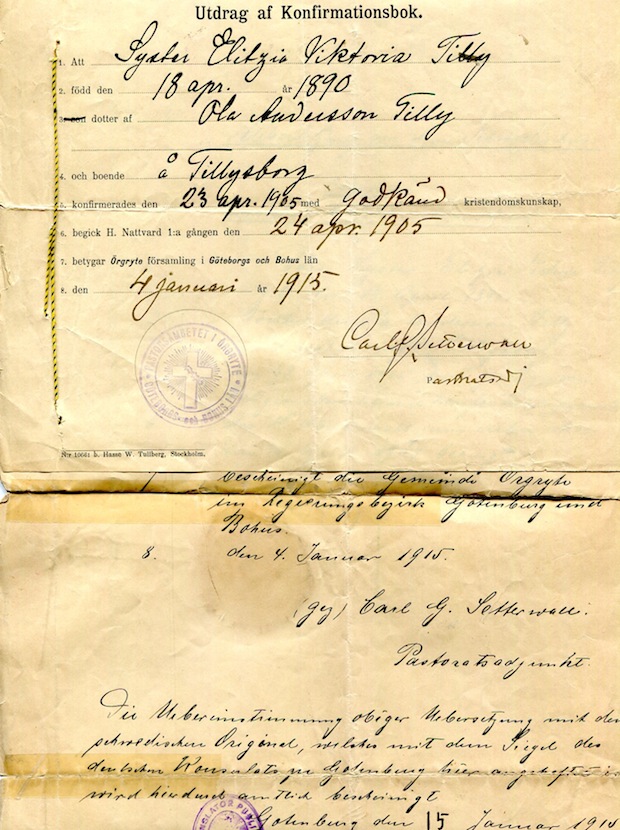 Utdrag af Konfirmationsbok.
1. Att Syster Elitzia Viktoria Tilly
2. född den 18 apr. år 1890
3. son dotter af Ola Andersson Tilly
4. och boende å Tillysborg
5. konfirmerades den 23 apr. 1905 med godkänd kristendomskunskap,
6. begick H. Nattvard 1:a gången den 24 apr. 1905
7. betygar Örgryte församling i Göteborgs och Bohus län
8. den 4 januari år 1915.
Carl G. Setterwall
Pastoratsadj
PASTORSÄMBETET I ÖRGRYTE
GÖTEBORGS- OCH BOHUS LÄN
N:r 10661 b. Hasse W. Tullberg, Stockholm.
bescheinigt die Gemeinde Örgryte
im Regierungsbezirk Gotenburg und
Bohus.
8. den 4. Januar 1915.
(gez) Carl G. Setterwall.
Pastoratsadjunkt.
Die Uebereinstimmung obiger Uebersetzung mit dem
schwedischen Original, welches mit dem Siegel des
deutschen Konsulats zu Gotenburg hier angeheftet
wird hierdurch amtlich bescheinigt
Gotenburg den 15 Januar 1915
TRANSLATOR PUBLIC